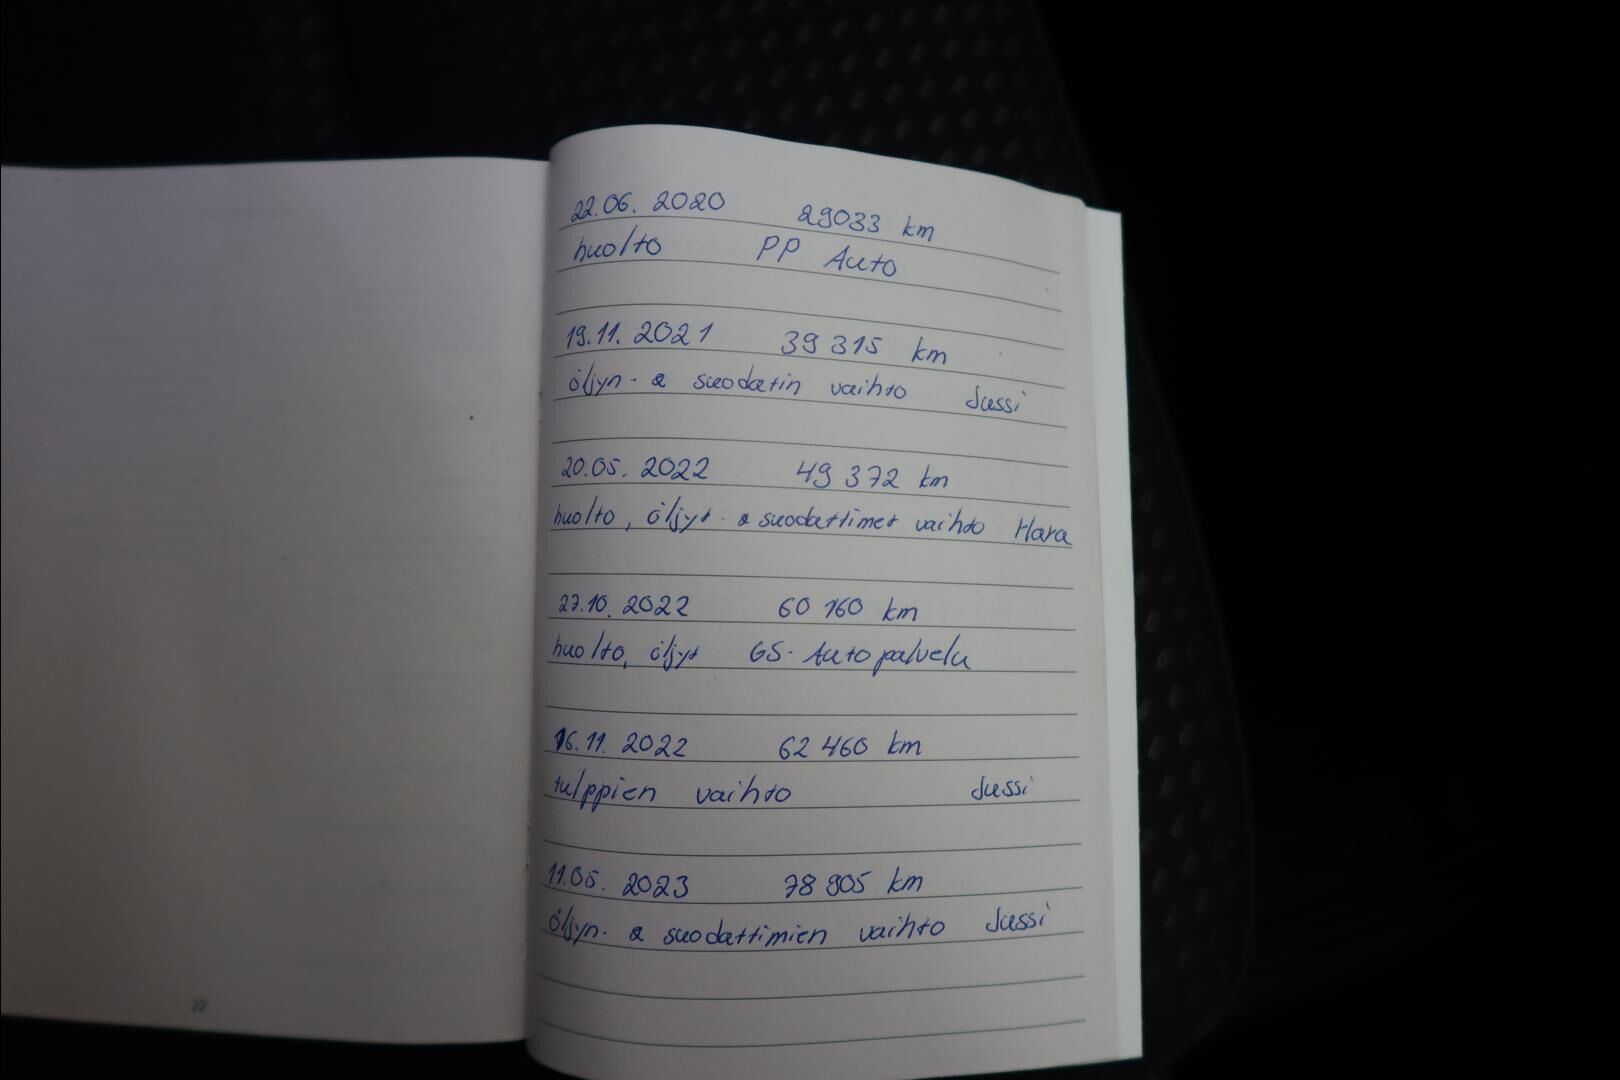 22.06. 2020 29033 km
huolto PP Auto
19.11. 2021 39 315 km
öljyn- & suodatin vaihto Jussi
20.05. 2022 49 372 km
huolto, öljyt- & suodattimet vaihto Hara
27.10. 2022 60 160 km
huolto, öljyt GS-Autopalvelu
16.11. 2022 62 460 km
tulppien vaihto Jussi
11.05. 2023 78 905 km
öljyn- & suodattimien vaihto Jussi
22